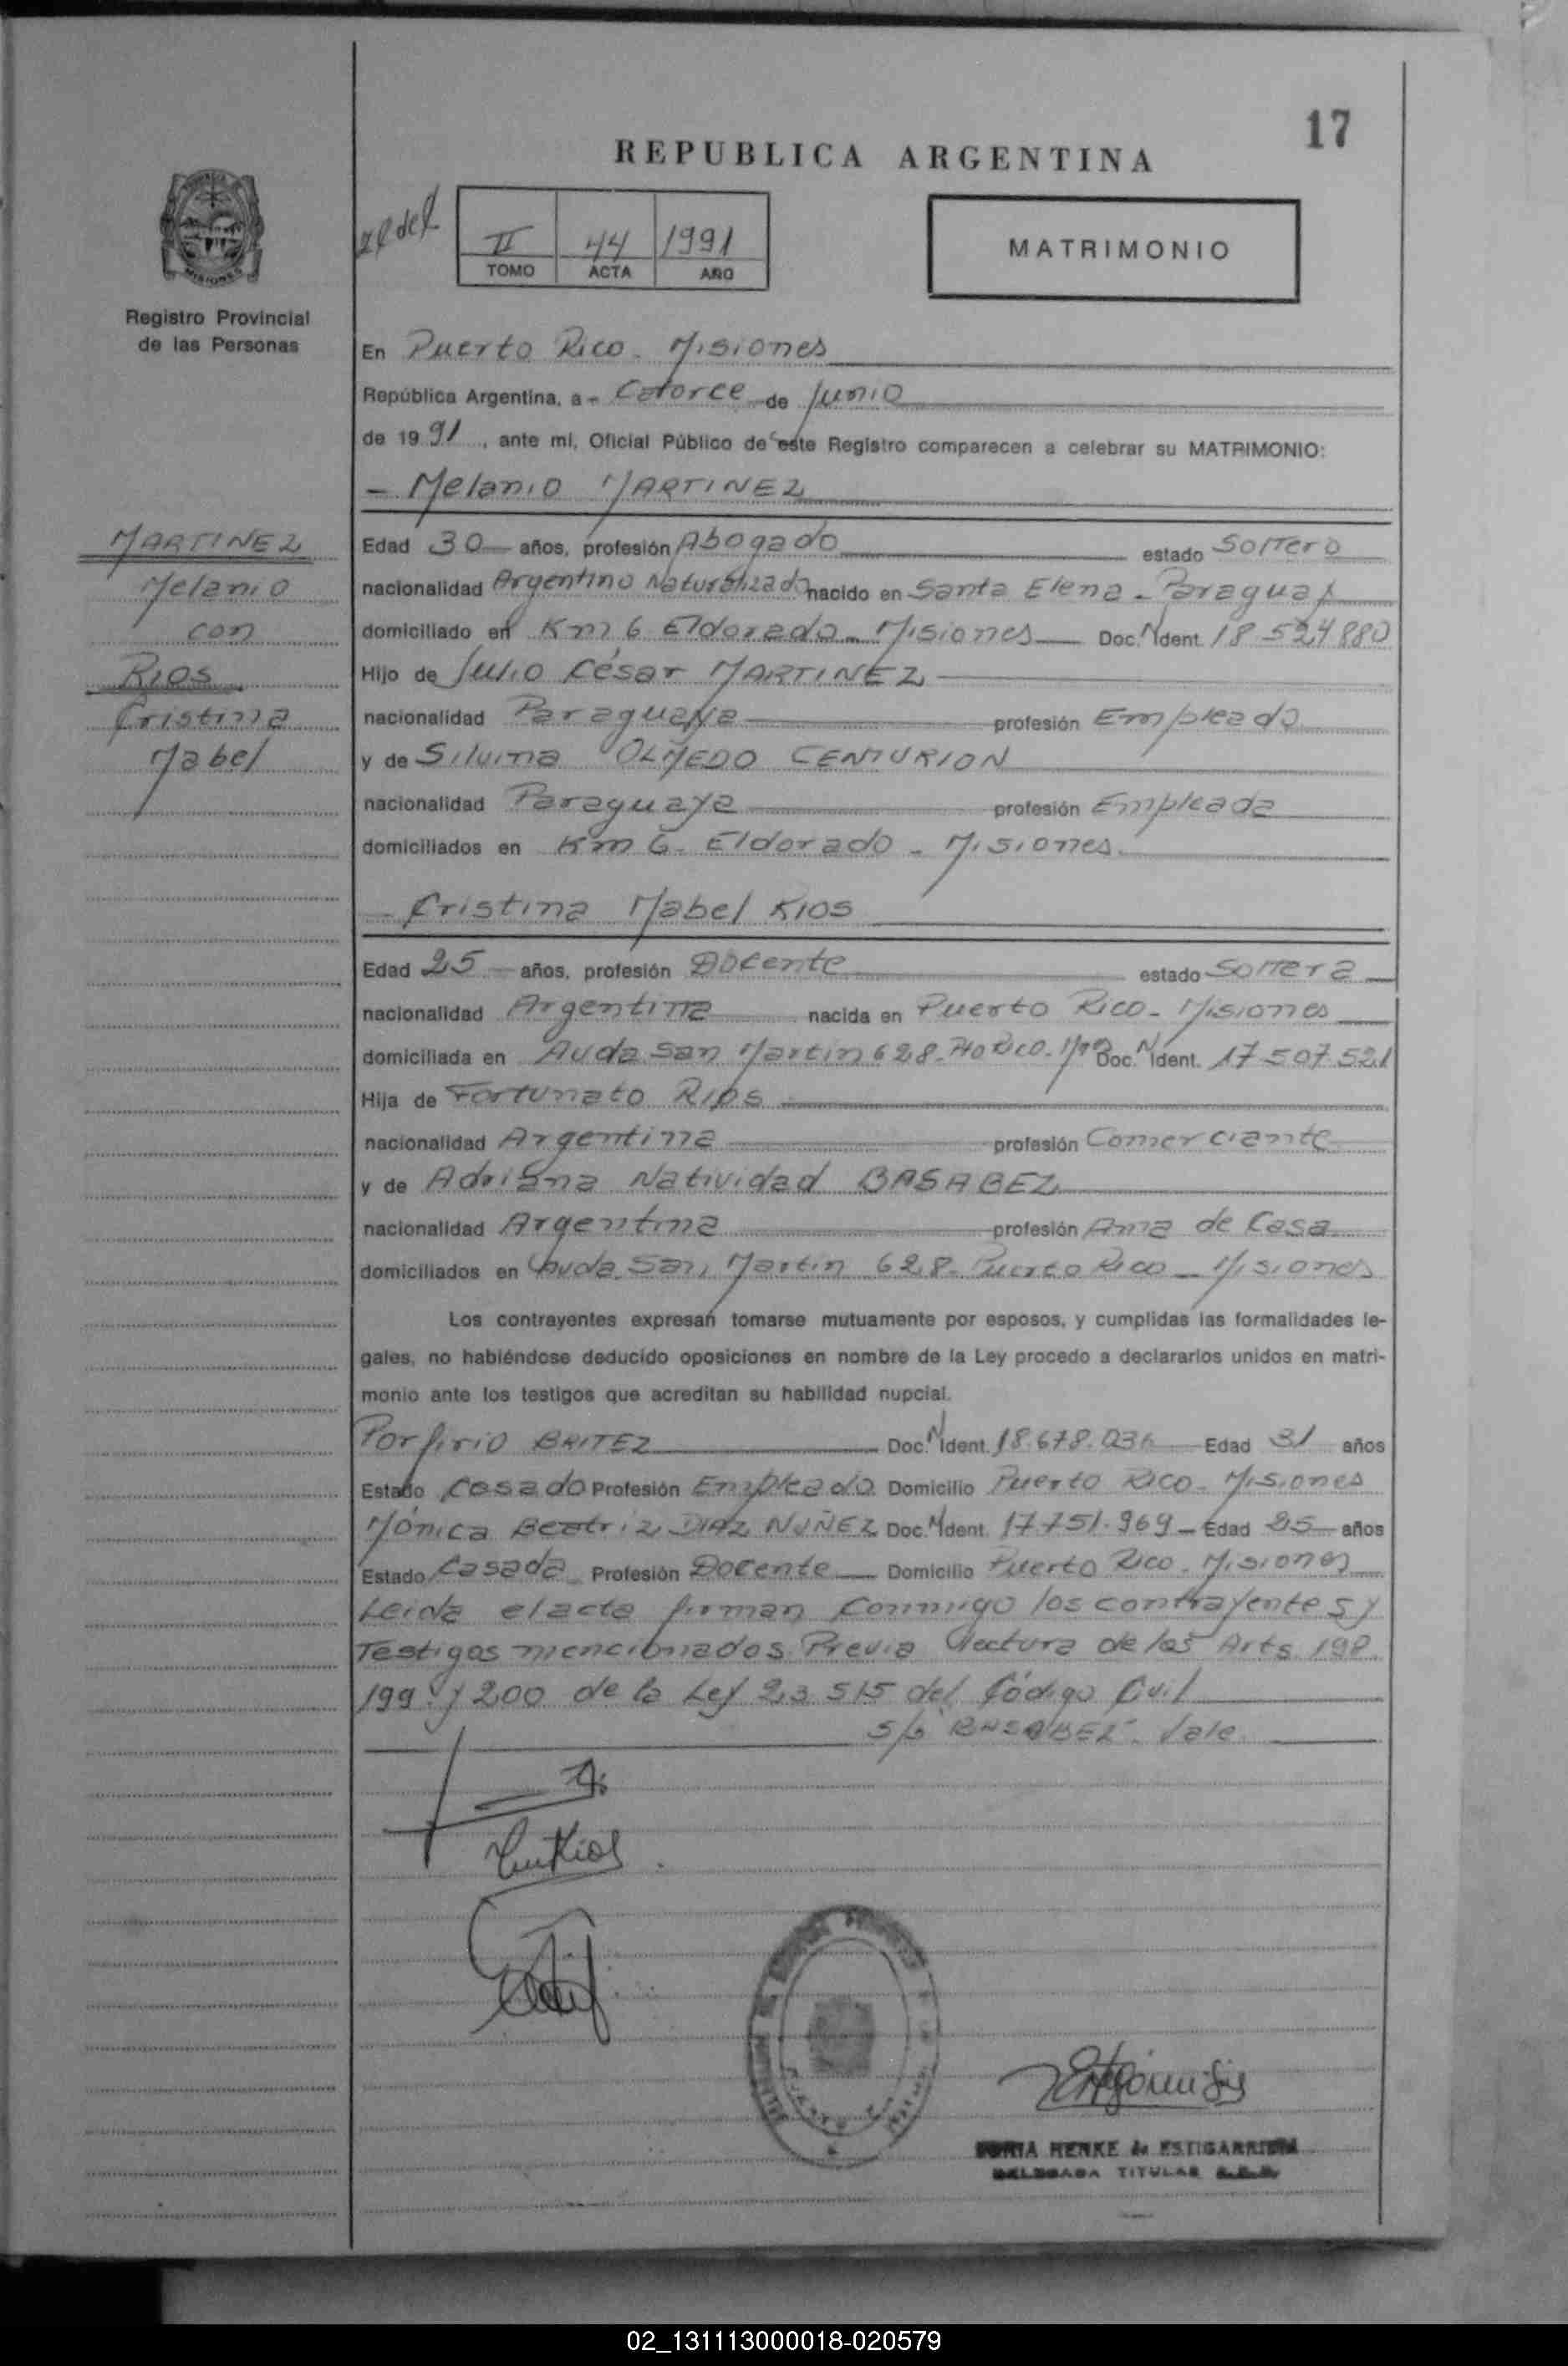 17
REPUBLICA ARGENTINA
II 44 1991
TOMO ACTA AÑO
MATRIMONIO
Registro Provincial
de las Personas
En Puerto Rico - Misiones
República Argentina, a - Catorce de Junio
de 1991, ante mí, Oficial Público de este Registro comparecen a celebrar su MATRIMONIO:
- Melanio MARTINEZ
MARTINEZ
Melanio
con
RIOS
Cristina
Mabel
Edad 30 años, profesión Abogado estado Soltero
nacionalidad Argentino Naturalizado nacido en Santa Elena - Paraguay
domiciliado en Km 6 Eldorado - Misiones Doc. N Ident. 18 524 880
Hijo de Julio César MARTINEZ
nacionalidad Paraguaya profesión Empleado
y de Silvina OLMEDO CENTURION
nacionalidad Paraguaya profesión Empleada
domiciliados en Km 6 - Eldorado - Misiones.
- Cristina Mabel RIOS
Edad 25 años, profesión Docente estado Soltera
nacionalidad Argentina nacida en Puerto Rico - Misiones
domiciliada en Avda. San Martin 628 - Doc. N Ident. 17 507 521
Hija de Fortunato RIOS
nacionalidad Argentina profesión Comerciante
y de Adriana Natividad BASABEZ
nacionalidad Argentina profesión Ama de Casa
domiciliados en Avda. San Martin 628 - Puerto Rico - Misiones
Los contrayentes expresan tomarse mutuamente por esposos, y cumplidas las formalidades le-
gales, no habiéndose deducido oposiciones en nombre de la Ley procedo a declararlos unidos en matri-
monio ante los testigos que acreditan su habilidad nupcial.
Porfirio BRITEZ Doc. N Ident. 18.678.036 Edad 31 años
Estado Casado Profesión Empleado Domicilio Puerto Rico - Misiones
Mónica Beatriz DIAZ NUÑEZ Doc. N Ident. 17 751.969 - Edad 25 años
Estado Casada Profesión Docente Domicilio Puerto Rico - Misiones
Leida el acta firman conmigo los contrayentes y
Testigos mencionados. Previa lectura de los Arts. 198
199 y 200 de la Ley 23 515 del Código Civil
S/b "BASABEZ" Vale.
HENKE de ESTIGARRIBIA
DELEGADA TITULAR
02_131113000018-020579